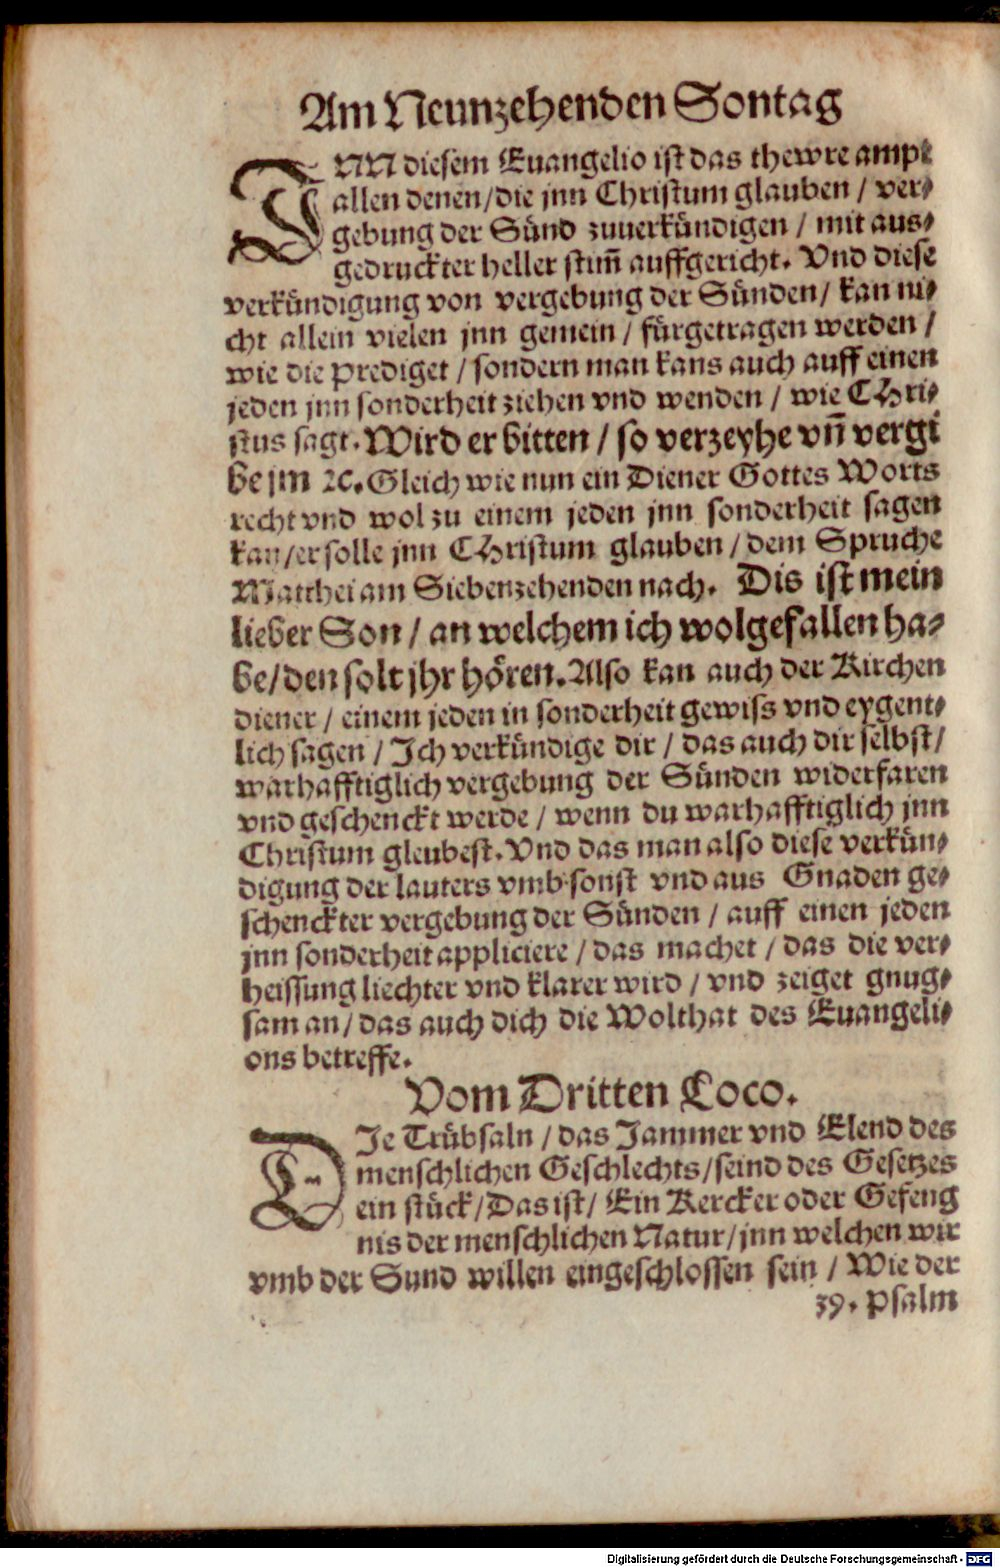 Am Neunzehenden Sontag
INN diesem Euangelio ist das thewre ampt
allen denen/die jnn Christum glauben / ver⸗
gebung der Sünd zuuerkündigen / mit aus⸗
gedruckter heller stim̃ auffgericht. Vnd diese
verkündigung von vergebung der Sünden/ kan ni⸗
cht allein vielen jnn gemein / fürgetragen werden /
wie die prediget / sondern man kans auch auff einen
jeden jnn sonderheit ziehen vnd wenden / wie CHri⸗
stus sagt. Wird er bitten / so verzeyhe vñ vergi
be jm ꝛc. Gleich wie nun ein Diener Gottes Worts
recht vnd wol zu einem jeden jnn sonderheit sagen
kan/er solle jnn CHristum glauben / dem Spruche
Matthei am Siebenzehenden nach. Dis ist mein
lieber Son / an welchem ich wolgefallen ha⸗
be/den solt jhr hören. Also kan auch der Kirchen
diener / einem jeden in sonderheit gewiss vnd eygent⸗
lich sagen / Ich verkündige dir / das auch dir selbst/
warhafftiglich vergebung der Sünden widerfaren
vnd geschenckt werde / wenn du warhafftiglich jnn
Christum gleubest. Vnd das man also diese verkün⸗
digung der lauters vmb sonst vnd aus Gnaden ge⸗
schenckter vergebung der Sünden / auff einen jeden
jnn sonderheit appliciere / das machet / das die ver⸗
heissung liechter vnd klarer wird / vnd zeiget gnug⸗
sam an/ das auch dich die Wolthat des Euangeli⸗
ons betreffe.
Vom Dritten Loco.
DIe Trübsaln / das Jammer vnd Elend des
menschlichen Geschlechts/seind des Gesetzes
ein stück/Das ist/ Ein Kercker oder Gefeng
nis der menschlichen Natur/jnn welchen wir
vmb der Sund willen eingeschlossen sein / Wie der
39. Psalm
Digitalisierung gefördert durch die Deutsche Forschungsgemeinschaft - DFG